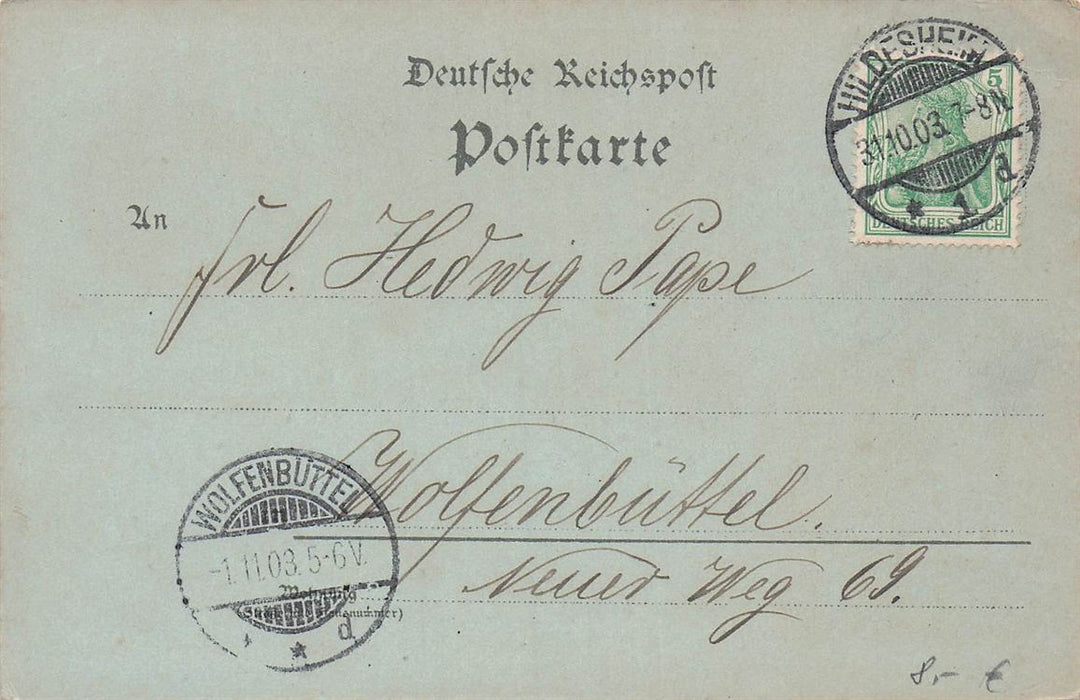 Deutsche Reichspost
Postkarte
HILDESHEIM
31.10.03. 7-8N
* 1. d
5
DEUTSCHES REICH
An
Frl. Hedwig Pape
Wolfenbüttel.
Neuer Weg 69.
WOLFENBÜTTEL
-1.11.03. 5-6V.
* * d
Wohnung
(Straße und Hausnummer)
8,- €